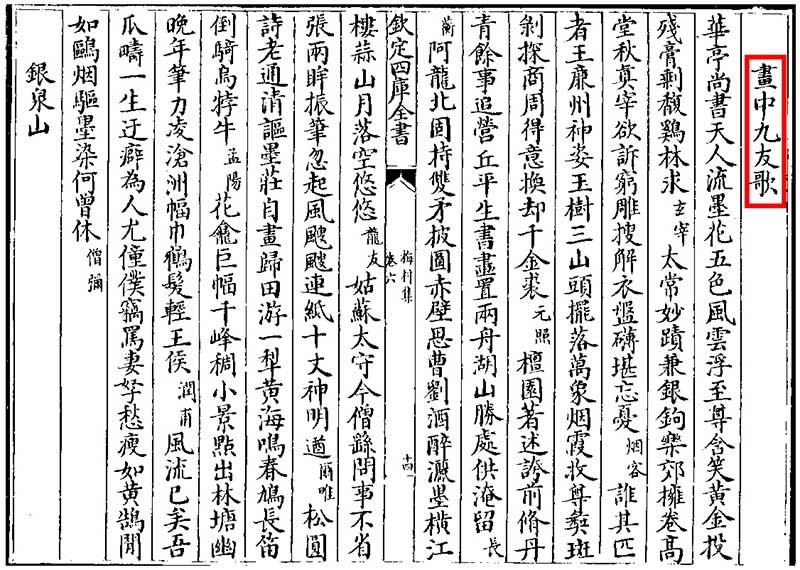 畫中九友歌
華亭尚書天人流墨花五色風雲浮至尊含笑黃金投
殘膏剩馥鷄林求玄宰太常妙蹟兼銀鉤樂郊擁卷高
堂秋真宰欲訴窮雕搜解衣盤礴堪忘憂烟客誰其匹
者王廉州神姿玉樹三山頭擺落萬象烟霞收尊彝斑
剝探商周得意換却千金裘元照檀園著述誇前脩丹
青餘事追營丘平生書畫置兩舟湖山勝處供淹留長
蘅阿龍北固持雙矛披圖赤壁思曹劉酒醉灑墨橫江
欽定四庫全書
梅村集
卷六
十四
樓蒜山月落空悠悠龍友姑蘇太守今僧繇問事不省
張兩眸振筆忽起風颼颼連紙十丈神明遒爾唯松圓
詩老通清謳墨莊自畫歸田游一犂黃海鳴春鳩長笛
倒騎烏牸牛孟陽花龕巨幅千峰稠小景點出林塘幽
晚年筆力凌滄洲幅巾鶴髮輕王侯潤甫風流已矣吾
瓜疇一生迂癖為人尤僮僕竊罵妻孥愁瘦如黃鵠閒
如鷗烟驅墨染何曾休僧彌
銀泉山